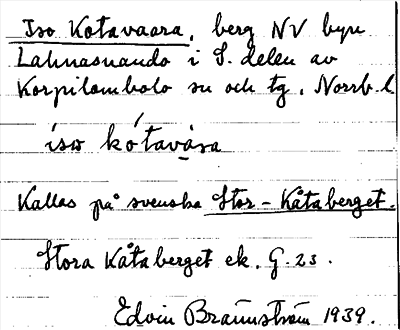 Iso Kotavaara, berg NV byn
Lahnasuando i S. delen av
Korpilombolo sn och tg, Norrb. l
íso kótavạ̄ra
Kallas på svenska Stor-Kåtaberget.
Stora Kåtaberget ek. G. 23.
Edvin Brännström 1939.